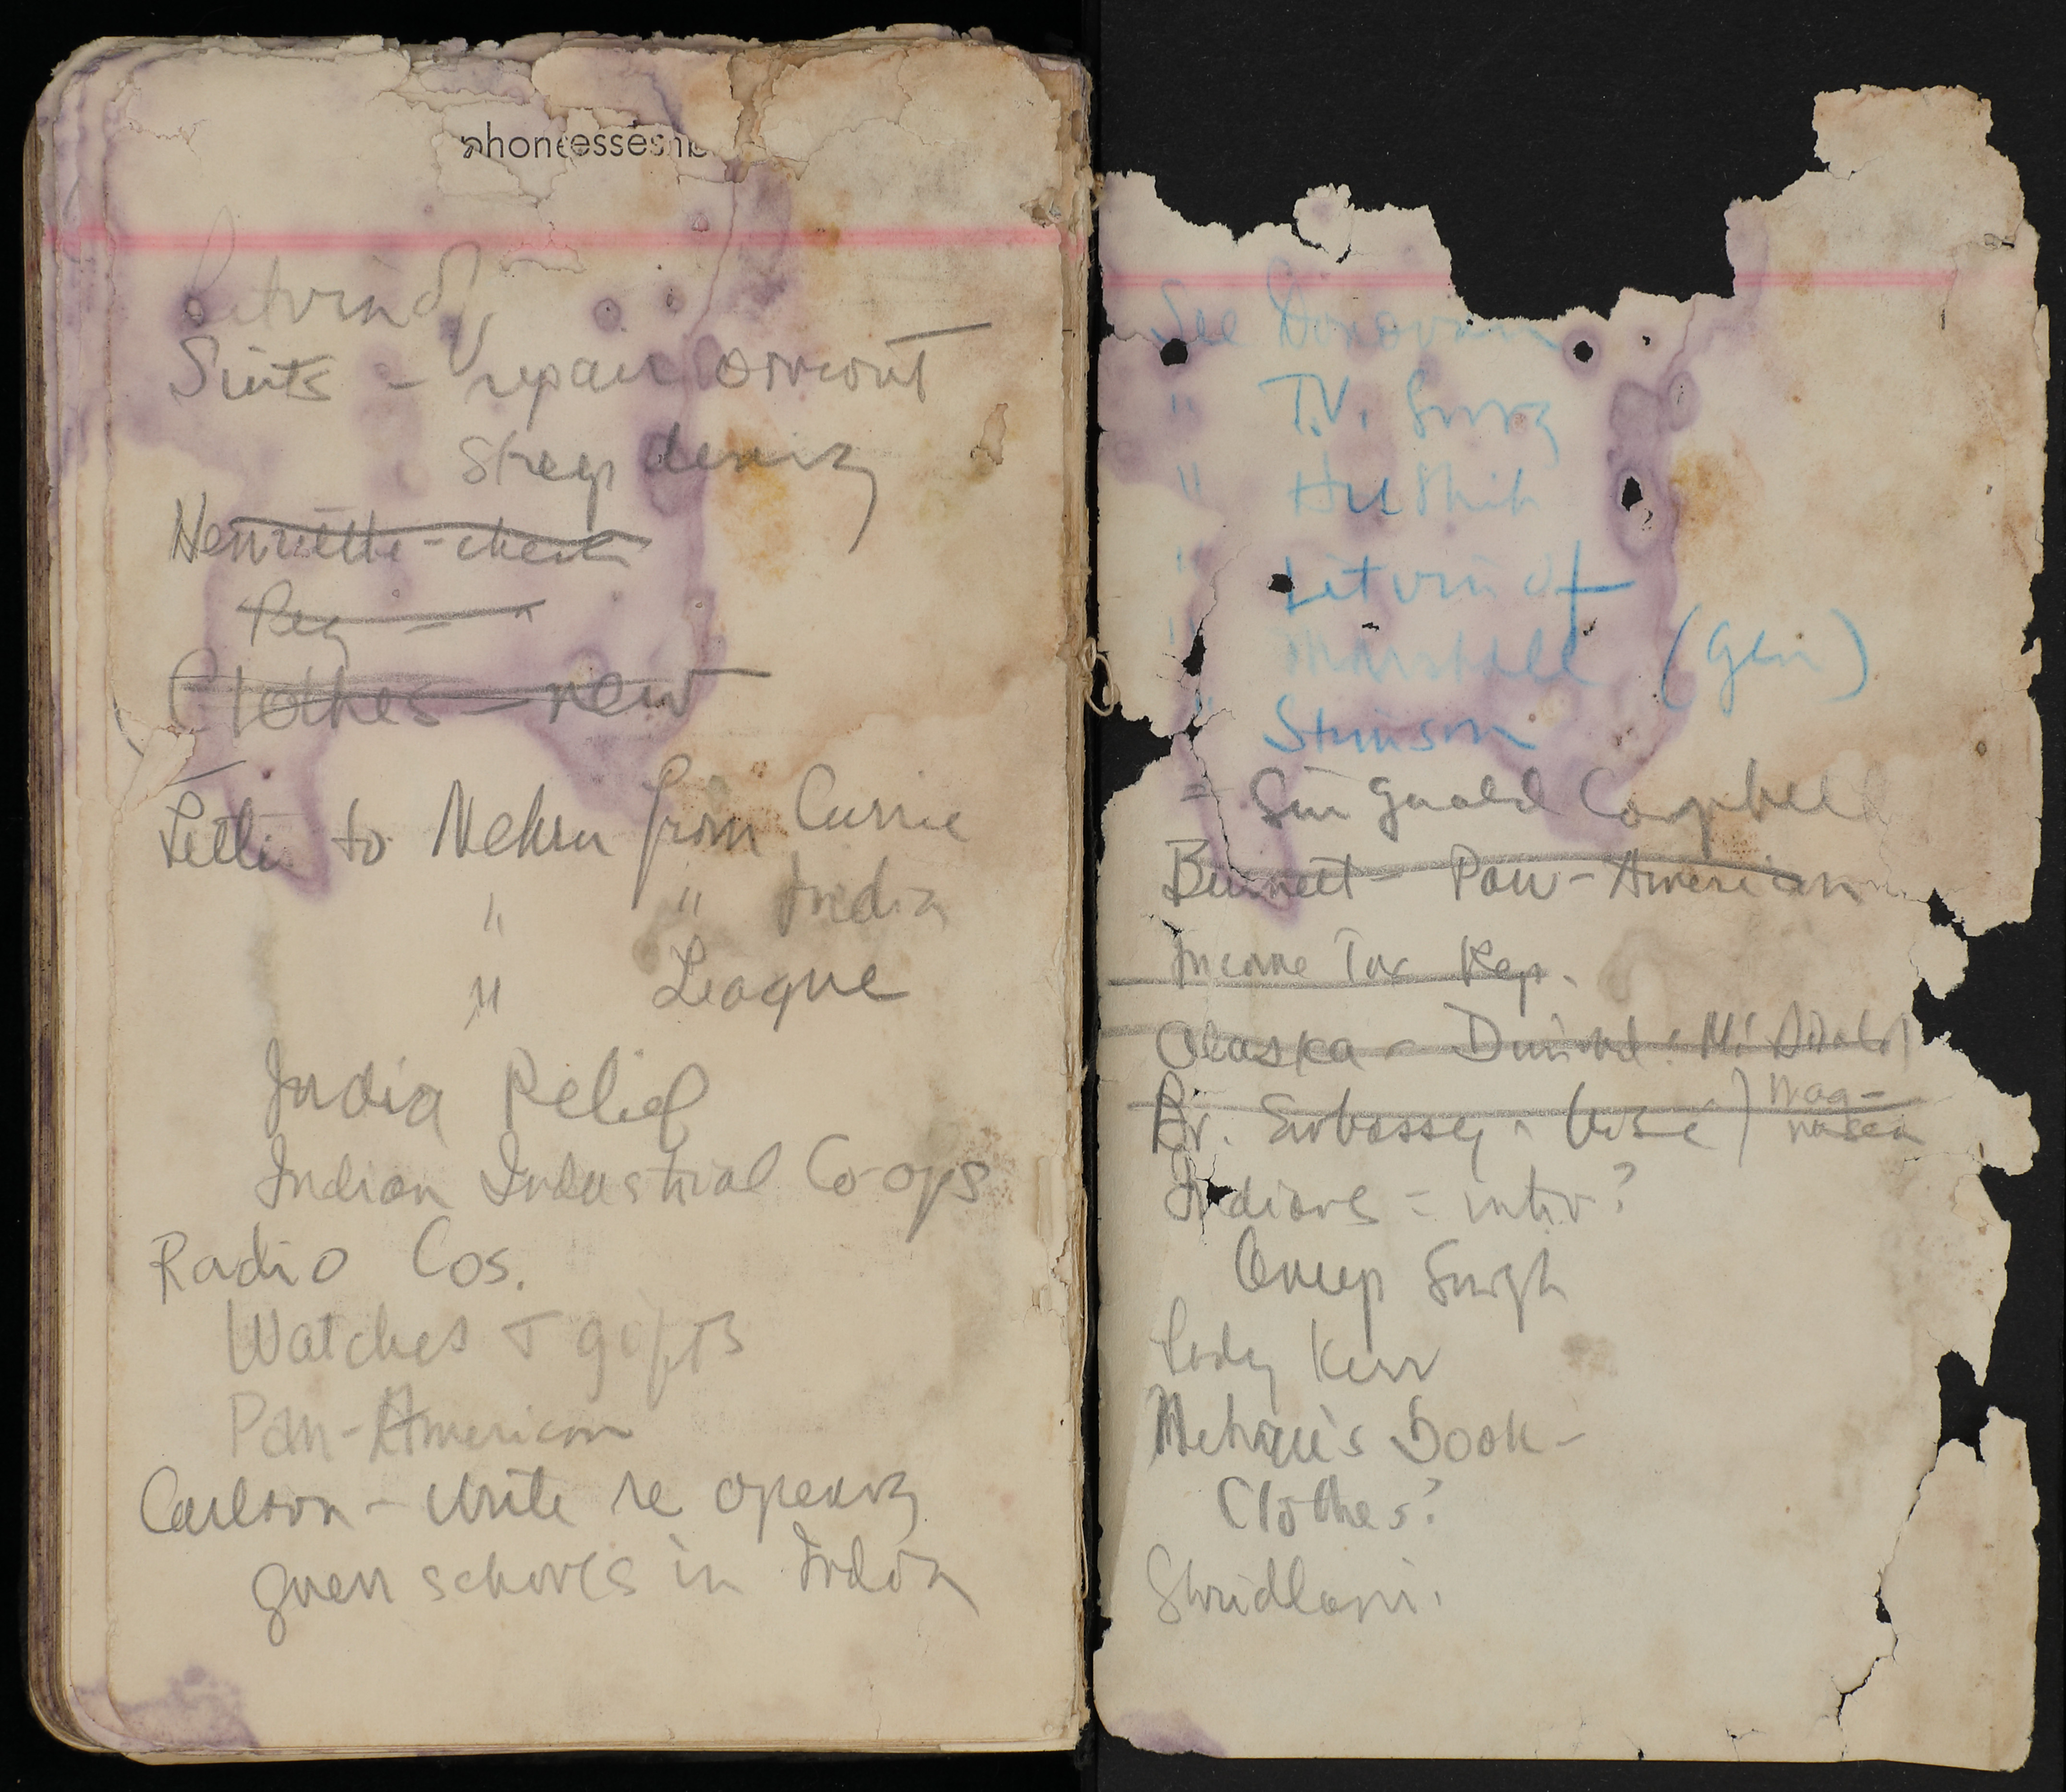 Litvinoff
Suits - repair
strap
Henriette - check
Peg - "
Clothes - new
Letter to Nehru from Currie
" " India
" League
India Relief
Indian Industrial Co-ops
Radio Cos.
Watches + gifts
Pan-American
Carlson - write re opening
guerr schools in India
See Donovan
" T.V. Soong
" Hu Shih
" Litvinoff
" Marshall (Gen)
" Stimson
" Sir Gerald Campbell
Bennett - Pan-American
Income Tax Rep.
Alaska -
Br. Embassy - (Visé)
Indians - intvr?
Anup Singh
Lady Kerr
Nehru's Book -
Clothes?
Shridlani.